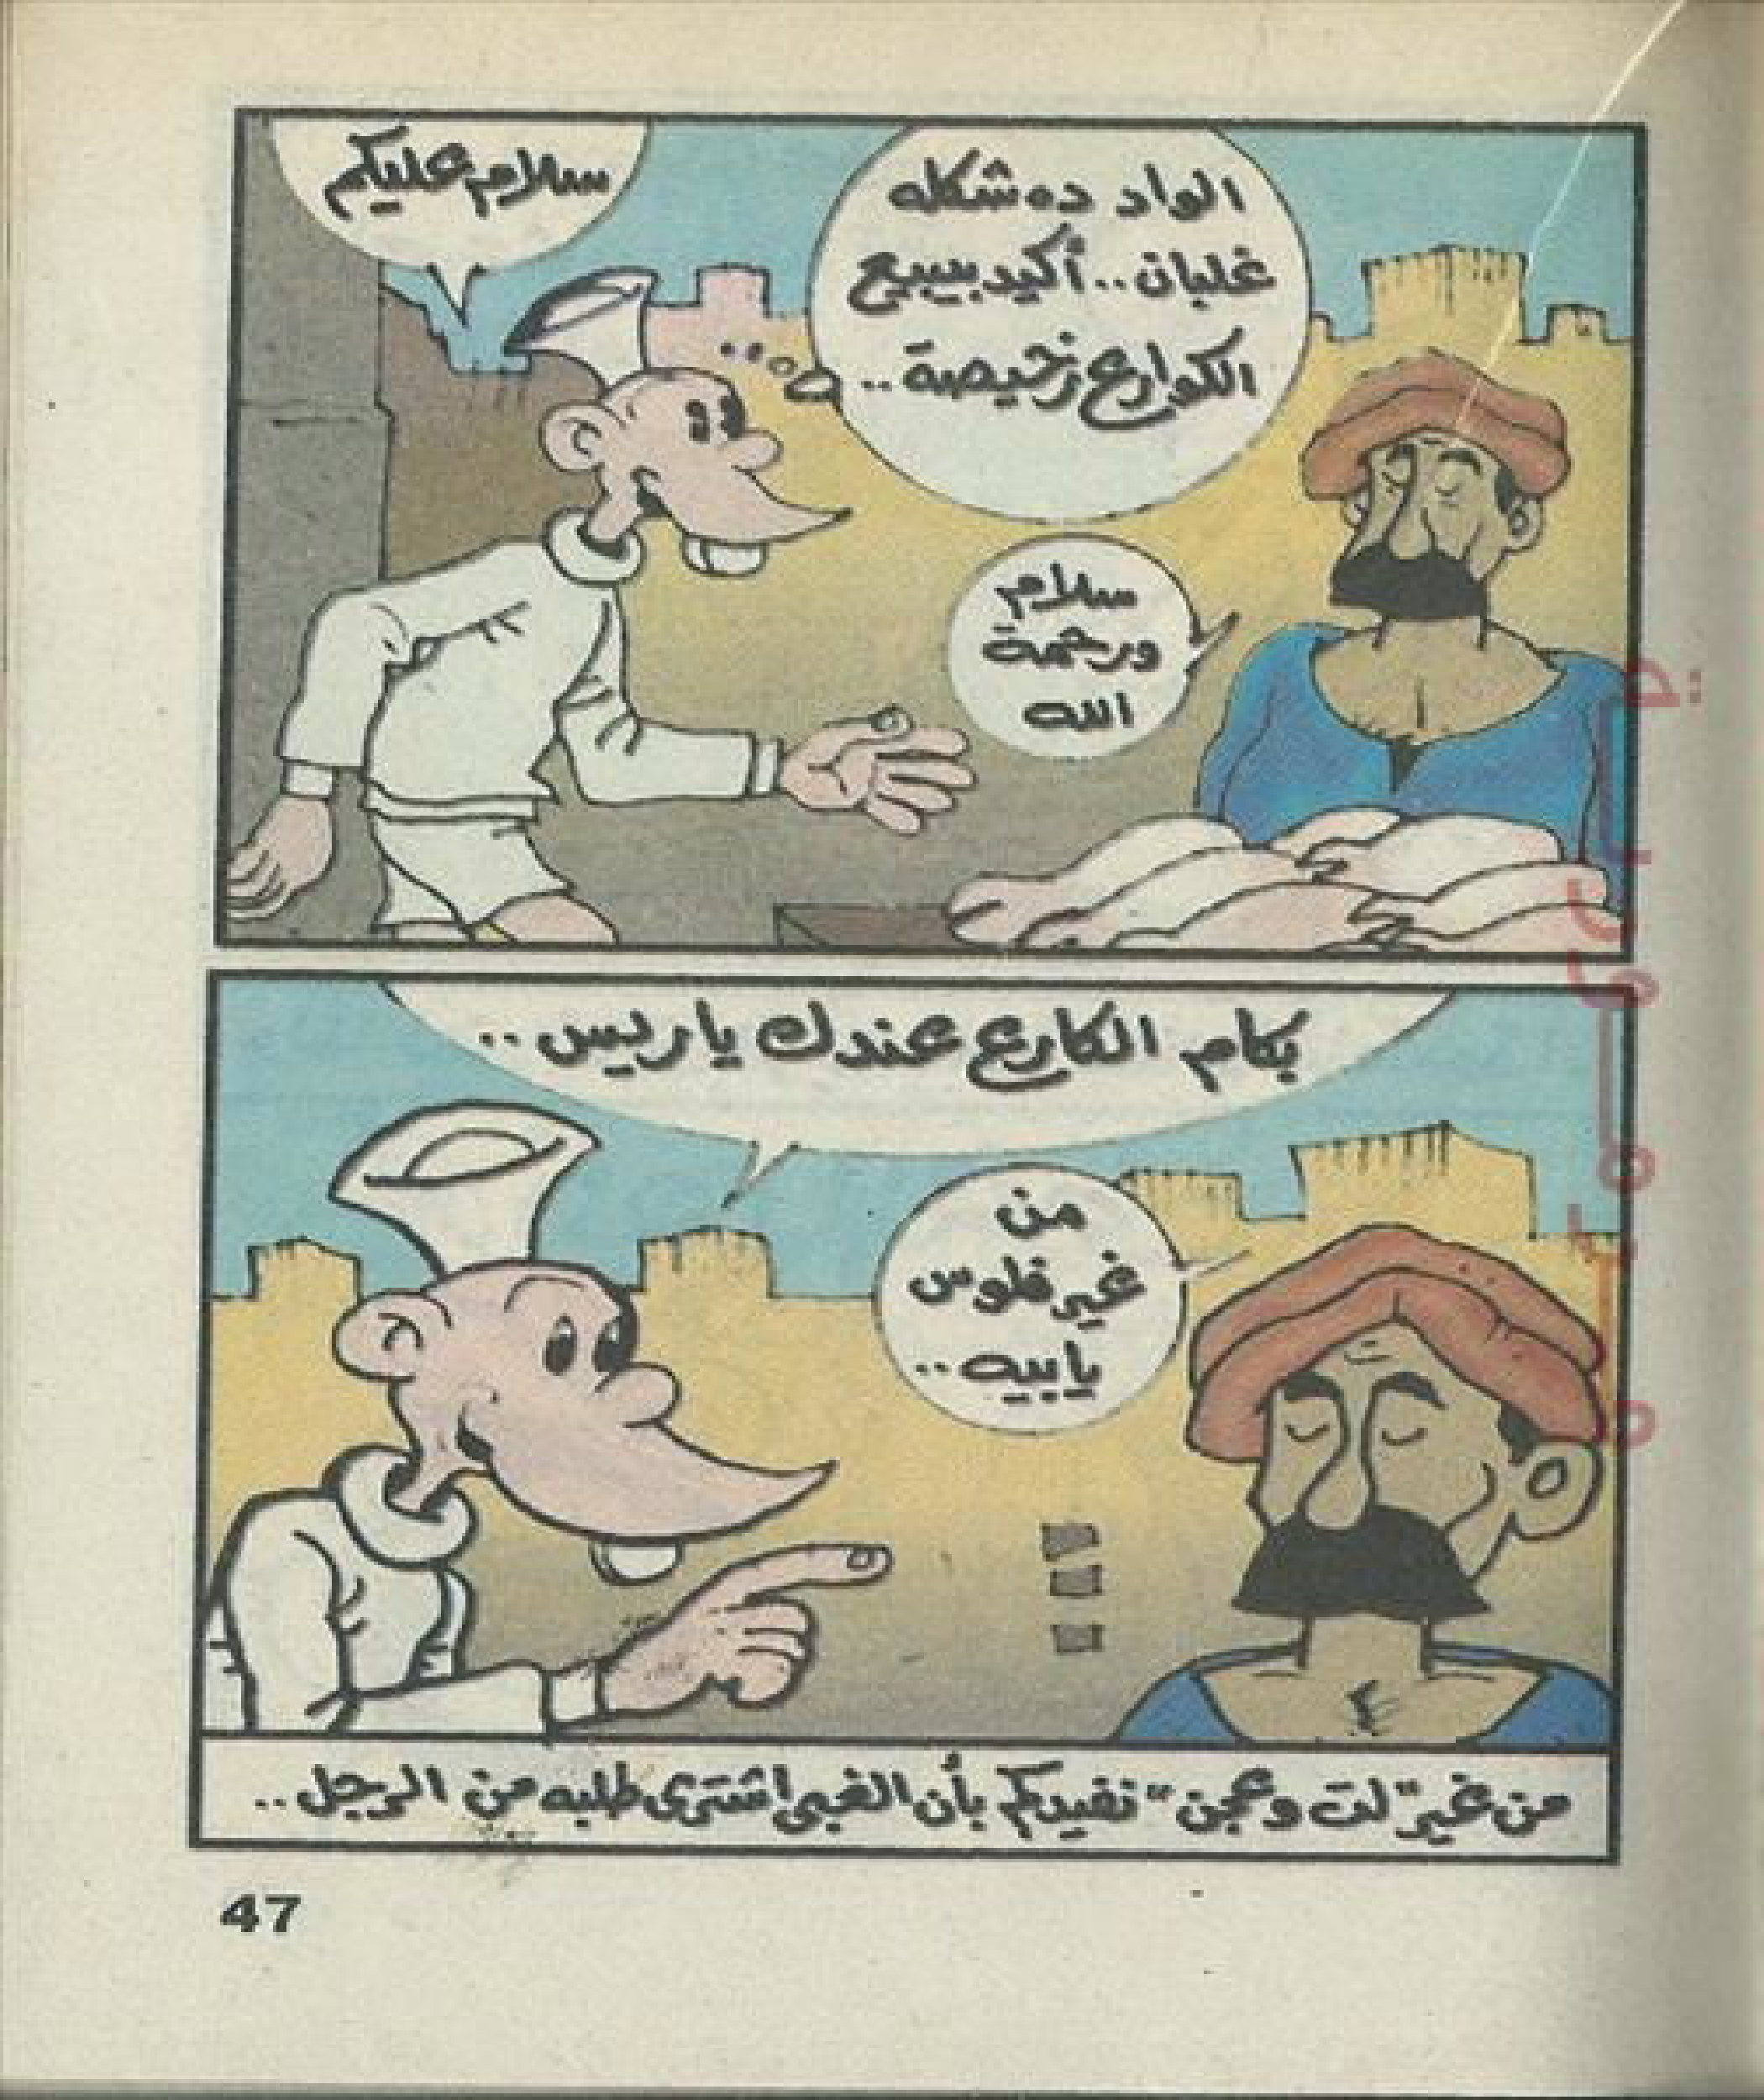 سلام عليكم
الواد ده شكله
غلبان.. أكيد بيبيع
الكوارع رخيصة..
سلام
ورحمة
الله
بكام الكارع عندك يا ريس..
من
غير فلوس
يا بيه..
من غير "لت وعجن" نفيدكم بأن الغبى اشترى طلبه من الرجل..
47